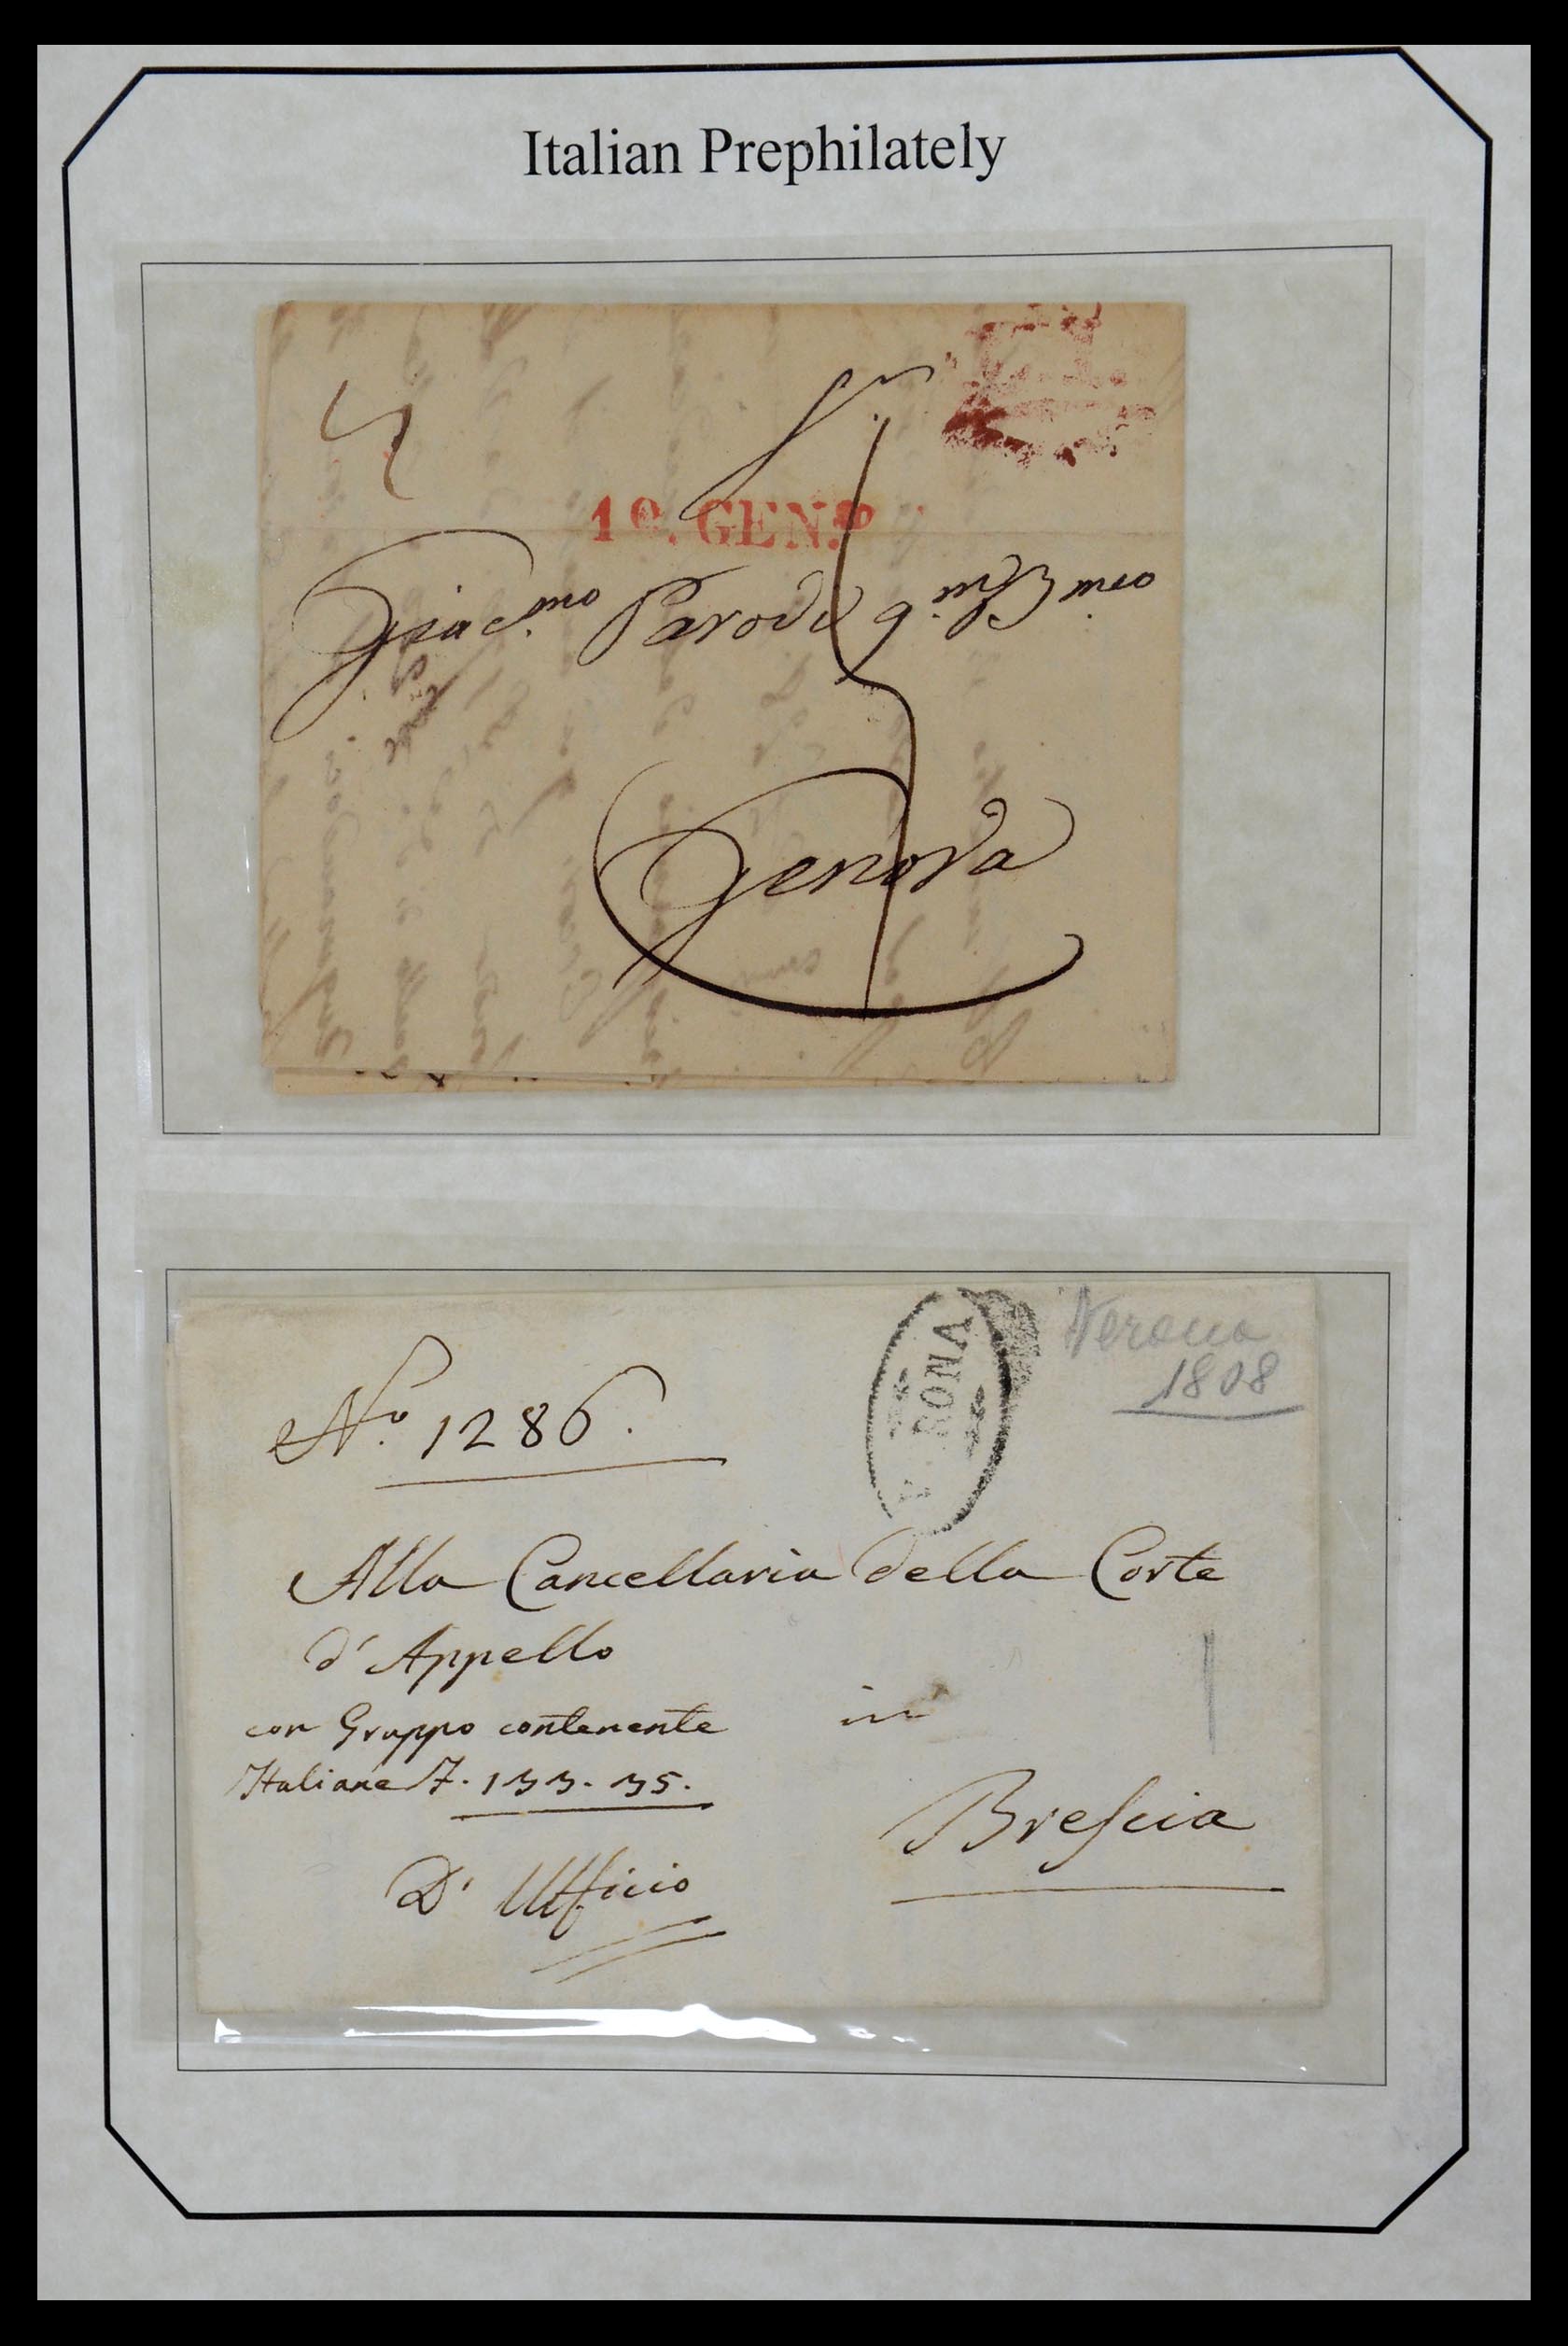 Italian Prephilately
1º. GEN.º
Giac.mo Parodi q.m
Genova
Verona
1808
RONA
Nº. 1286.
Alla Cancellaria della Corte
d'Appello
con Gruppo contenente
in
Italiane £. 133. 35.
Brescia
D' Ufficio